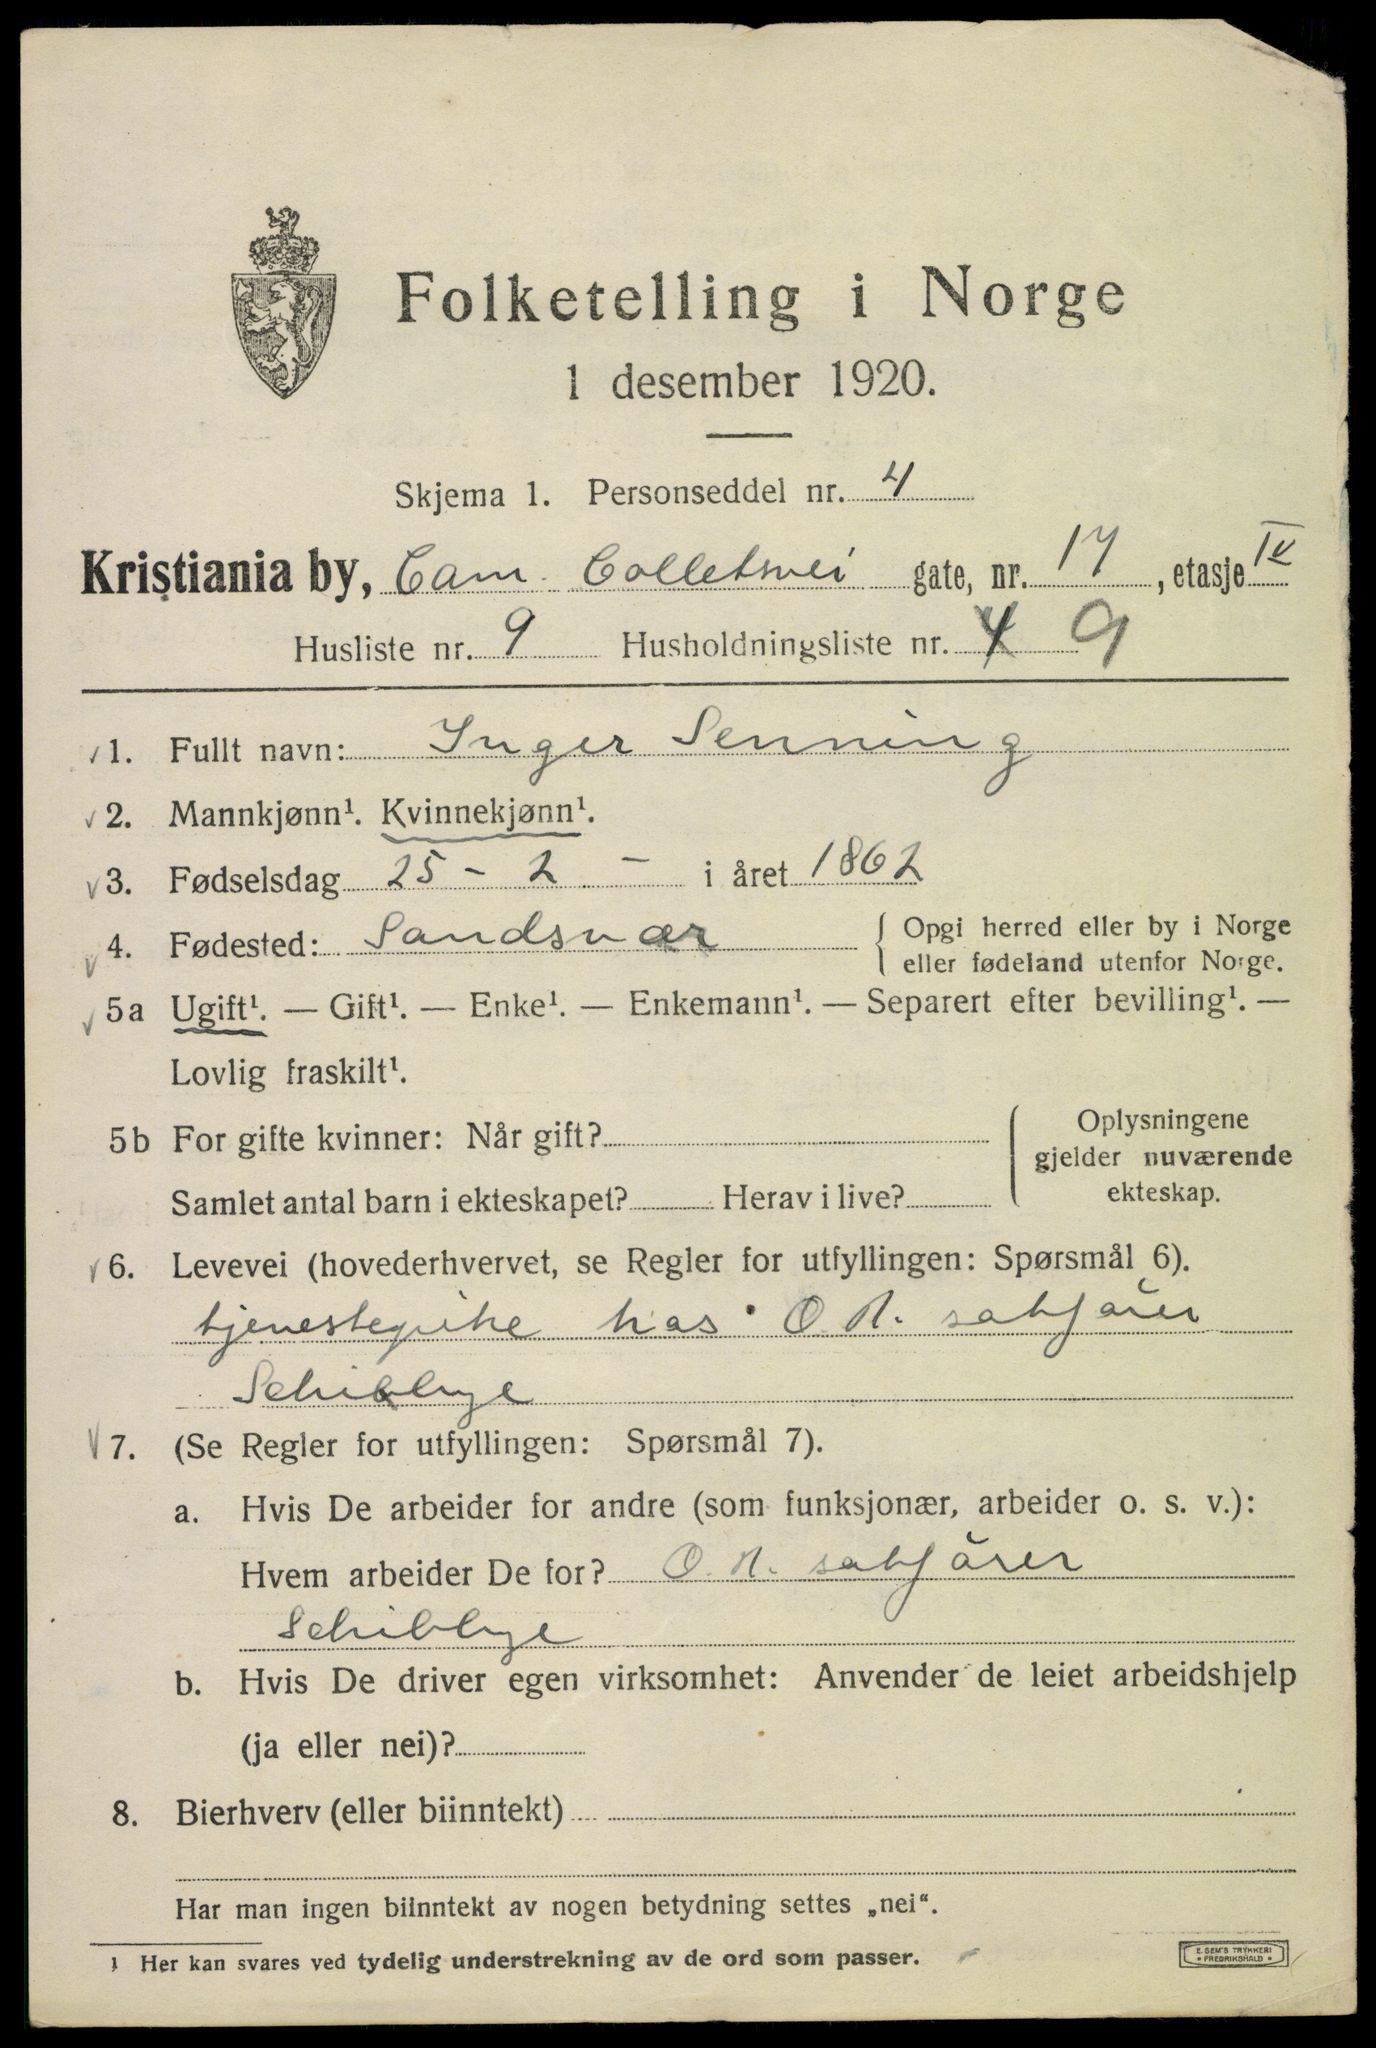 Folketelling i Norge
1 desember 1920.
Skjema 1. Personseddel nr. 4
Kristiania by, Cam. Colletsvei gate, nr. 17, etasje IV
Husliste nr. 9 Husholdningsliste nr. 4 9
1. Fullt navn: Inger Senning
2. Mannkjønn¹. Kvinnekjønn¹.
3. Fødselsdag 25 - 2 - i året 1862
4. Fødested: Sandsvær { Opgi herred eller by i Norge
eller fødeland utenfor Norge.
5a Ugift¹. — Gift¹. — Enke¹. — Enkemann¹. — Separert efter bevilling¹. —
Lovlig fraskilt¹.
5b For gifte kvinner: Når gift?
Samlet antal barn i ekteskapet? Herav i live?
Oplysningene
gjelder nuværende
ekteskap.
6. Levevei (hovederhvervet, se Regler for utfyllingen: Spørsmål 6).
tjenestepike hos O.R. sakfører
Schibbye
7. (Se Regler for utfyllingen: Spørsmål 7).
a. Hvis De arbeider for andre (som funksjonær, arbeider o. s. v.):
Hvem arbeider De for? O.R. sakfører
Schibbye
b. Hvis De driver egen virksomhet: Anvender de leiet arbeidshjelp
(ja eller nei)?
8. Bierhverv (eller biinntekt)
Har man ingen biinntekt av nogen betydning settes „nei“.
1 Her kan svares ved tydelig understrekning av de ord som passer.
E. SEM'S TRYKKERI
• FREDRIKSHALD •